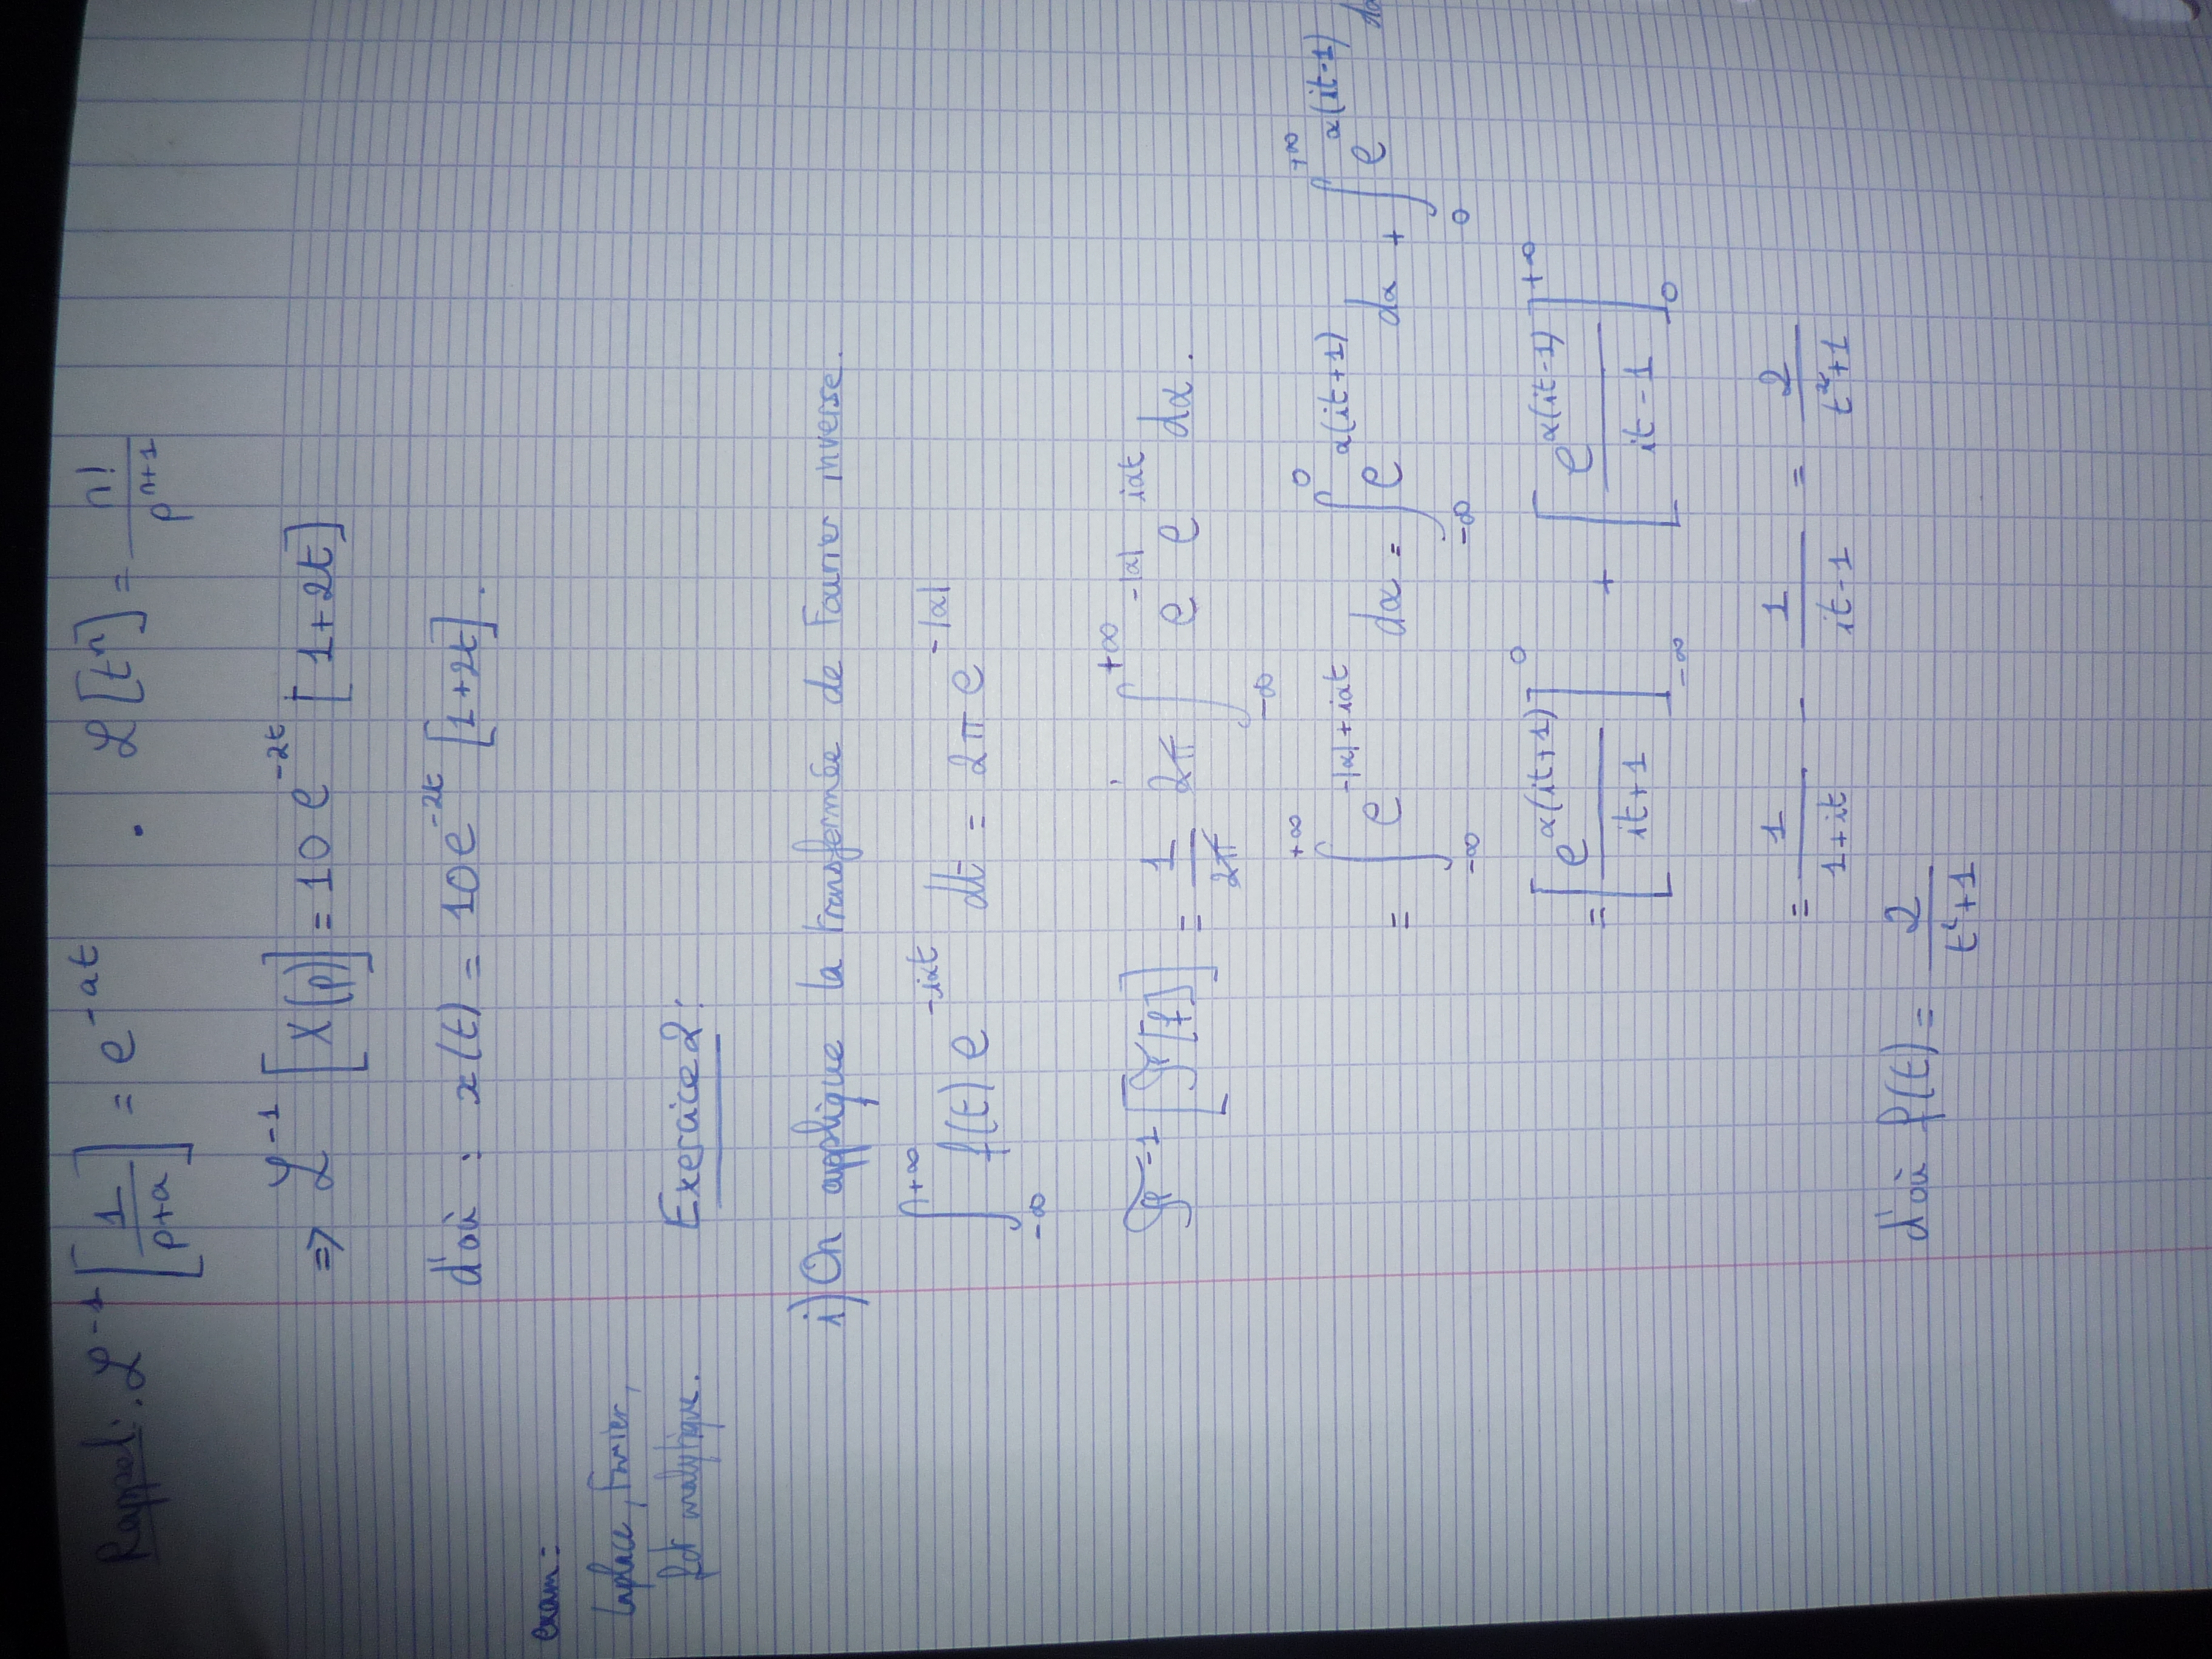 Rappel: . ℒ⁻¹[1/(p+a)] = e^(-at) . ℒ[tⁿ] = n!/p^(n+1)
⇒ ℒ⁻¹[X(p)] = 10 e^(-2t) [1+2t]
d'où : x(t) = 10e^(-2t) [1+2t].
exam:
Laplace, Fourier,
fct analytique.
Exercice 2:
i) On applique la transformée de Fourier inverse.
∫_{-∞}^{+∞} f(t) e^(-iαt) dt = 2π e^(-|α|)
ℱ⁻¹[ℱ[f]] = 1/2π 2π ∫_{-∞}^{+∞} e^(-|α|) e^(iαt) dα.
= ∫_{-∞}^{+∞} e^(-|α|+iαt) dα = ∫_{-∞}^{0} e^(α(it+1)) dα + ∫_{0}^{+∞} e^(α(it-1)) dα
= [e^(α(it+1))/(it+1)]_{-∞}^{0} + [e^(α(it-1))/(it-1)]_{0}^{+∞}
= 1/(1+it) - 1/(it-1) = 2/(t²+1)
d'où f(t) = 2/(t²+1)